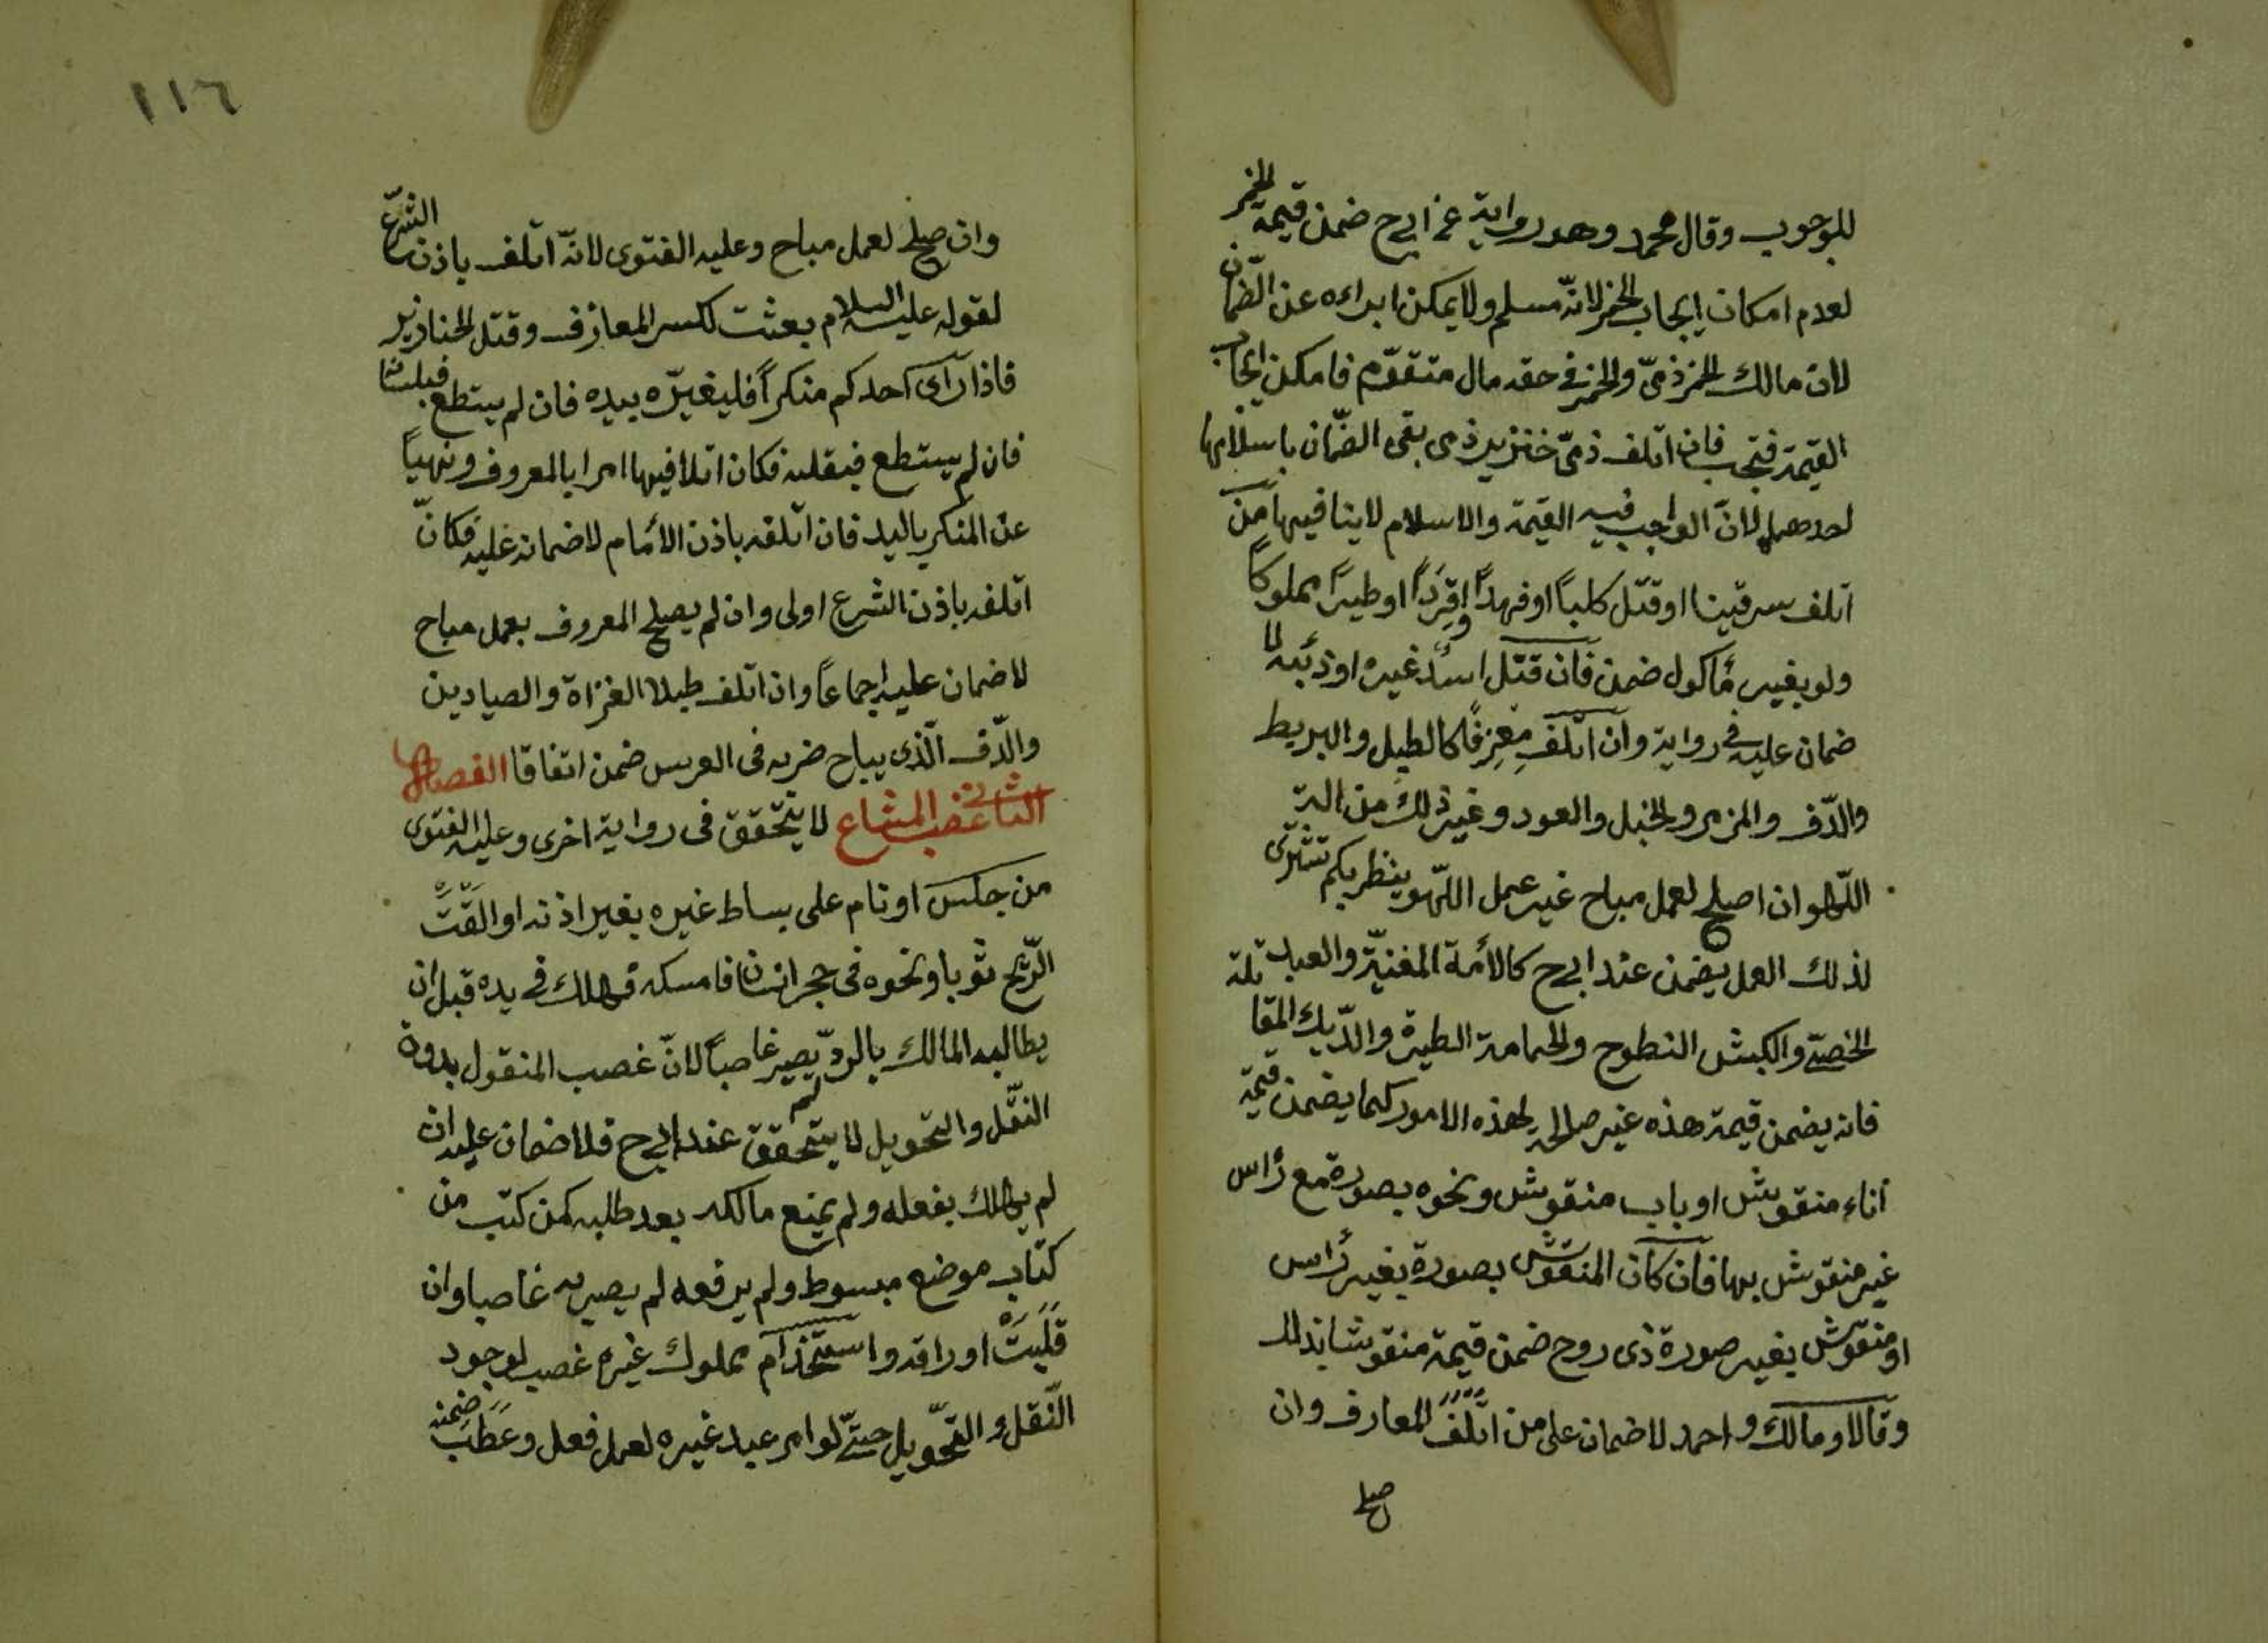 للوجوب وقال محمد وهو رواية عن ابي ح ضمن قيمة الخمر
لعدم امكان إيجاب الخمر لانّه مسلم ولا يمكن ابراءه عن الضّمان
لان مالك الخمر ذمّيّ والخمر في حقه مال متقوّم فامكن ايجاب
القيمة فتجب فان اتلف ذمّيّ خنزير ذمى بقى الضّمان باسلامها
احدهما لانّ الواجب فيه القيمة والاسلام لا ينافيها من
اتلف سرقينا او قتل كلباً او فهداً او قرداً او طيراً مملوكاً
ولو بغير مأكول ضمن فان قتل اسد غيره او ذئبه لا
ضمان عليه في رواية وان اتلف مِعزِفًا كالطبل والبربط
والدّف والمزمر والخبل والعود وغير ذلك من الة
اللّهو ان اصلح لعمل مباح غير عمل اللّهو ينظر بكم تشترى
لذلك العمل يضمن عند ابي ح كالأمة المغنيّة والعبد
الخصيّ والكبش النطوح والحمامة الطيرة والدّيك المقاتلة
فانه يضمن قيمة هذه غير صالح لهذه الامور كما يضمن قيمة
أناء منقوش او باب منقوش ونحوه بصورة مع رأس
غير منقوش بها فان كان المنقوش بصورة بغير رأس
او منقوش بغير صورة ذى روح ضمن قيمة منقوشا بذلك
وقالا ومالك واحمد لا ضمان على من اتلف المعارف وان
صلح
١١٦
وان صلح لعمل مباح وعليه الفتوى لانّه اتلف باذن الشرع
لقوله عليه السلام بعثت لكسر المعازف وقتل الخنازير
فاذا رأى احدكم منكراً فليغيّره بيده فان لم يستطع فبلسانه
فان لم يستطع فبقلبه فكان اتلافيها امرا بالمعروف ونهياً
عن المنكر باليد فان اتلفه باذن الأمام لا ضمانه عليه فكانّ
اتلفه باذن الشرع اولى وان لم يصلح المعروف بعمل مباح
لا ضمان عليه اجماعاً وان اتلف طبلا الغزاة والصيادين
والدّف الّذى يباح ضربه فى العرس ضمن اتفاقا الفصل
الثانى غصب المشاع لا يتحقق فى رواية اخرى وعليه الفتوى
من جلس او نام على بساط غيره بغير اذنه او القّت
الرّيح ثوبا ونحوه فى حجر انسان فامسكه فهلك في يده قبل ان
يطالبه المالك بالردّ يصير غاصباً لانّ غصب المنقول بدون
النقل والتحويل لا يتحقق عند ابي ح فلا ضمان عليه ان
لم يهلك بفعله ولم يمنع مالكه بعد طلبه كمن كتب من
كتاب موضع مبسوط ولم يرفعه لم يصر به غاصبا وان
قلبت اوراقه واستخدام مملوك غيره غصب لوجود
النّقل والتحويل حتّى لو امر عبد غيره لعمل ففعل وعطب ضمنه